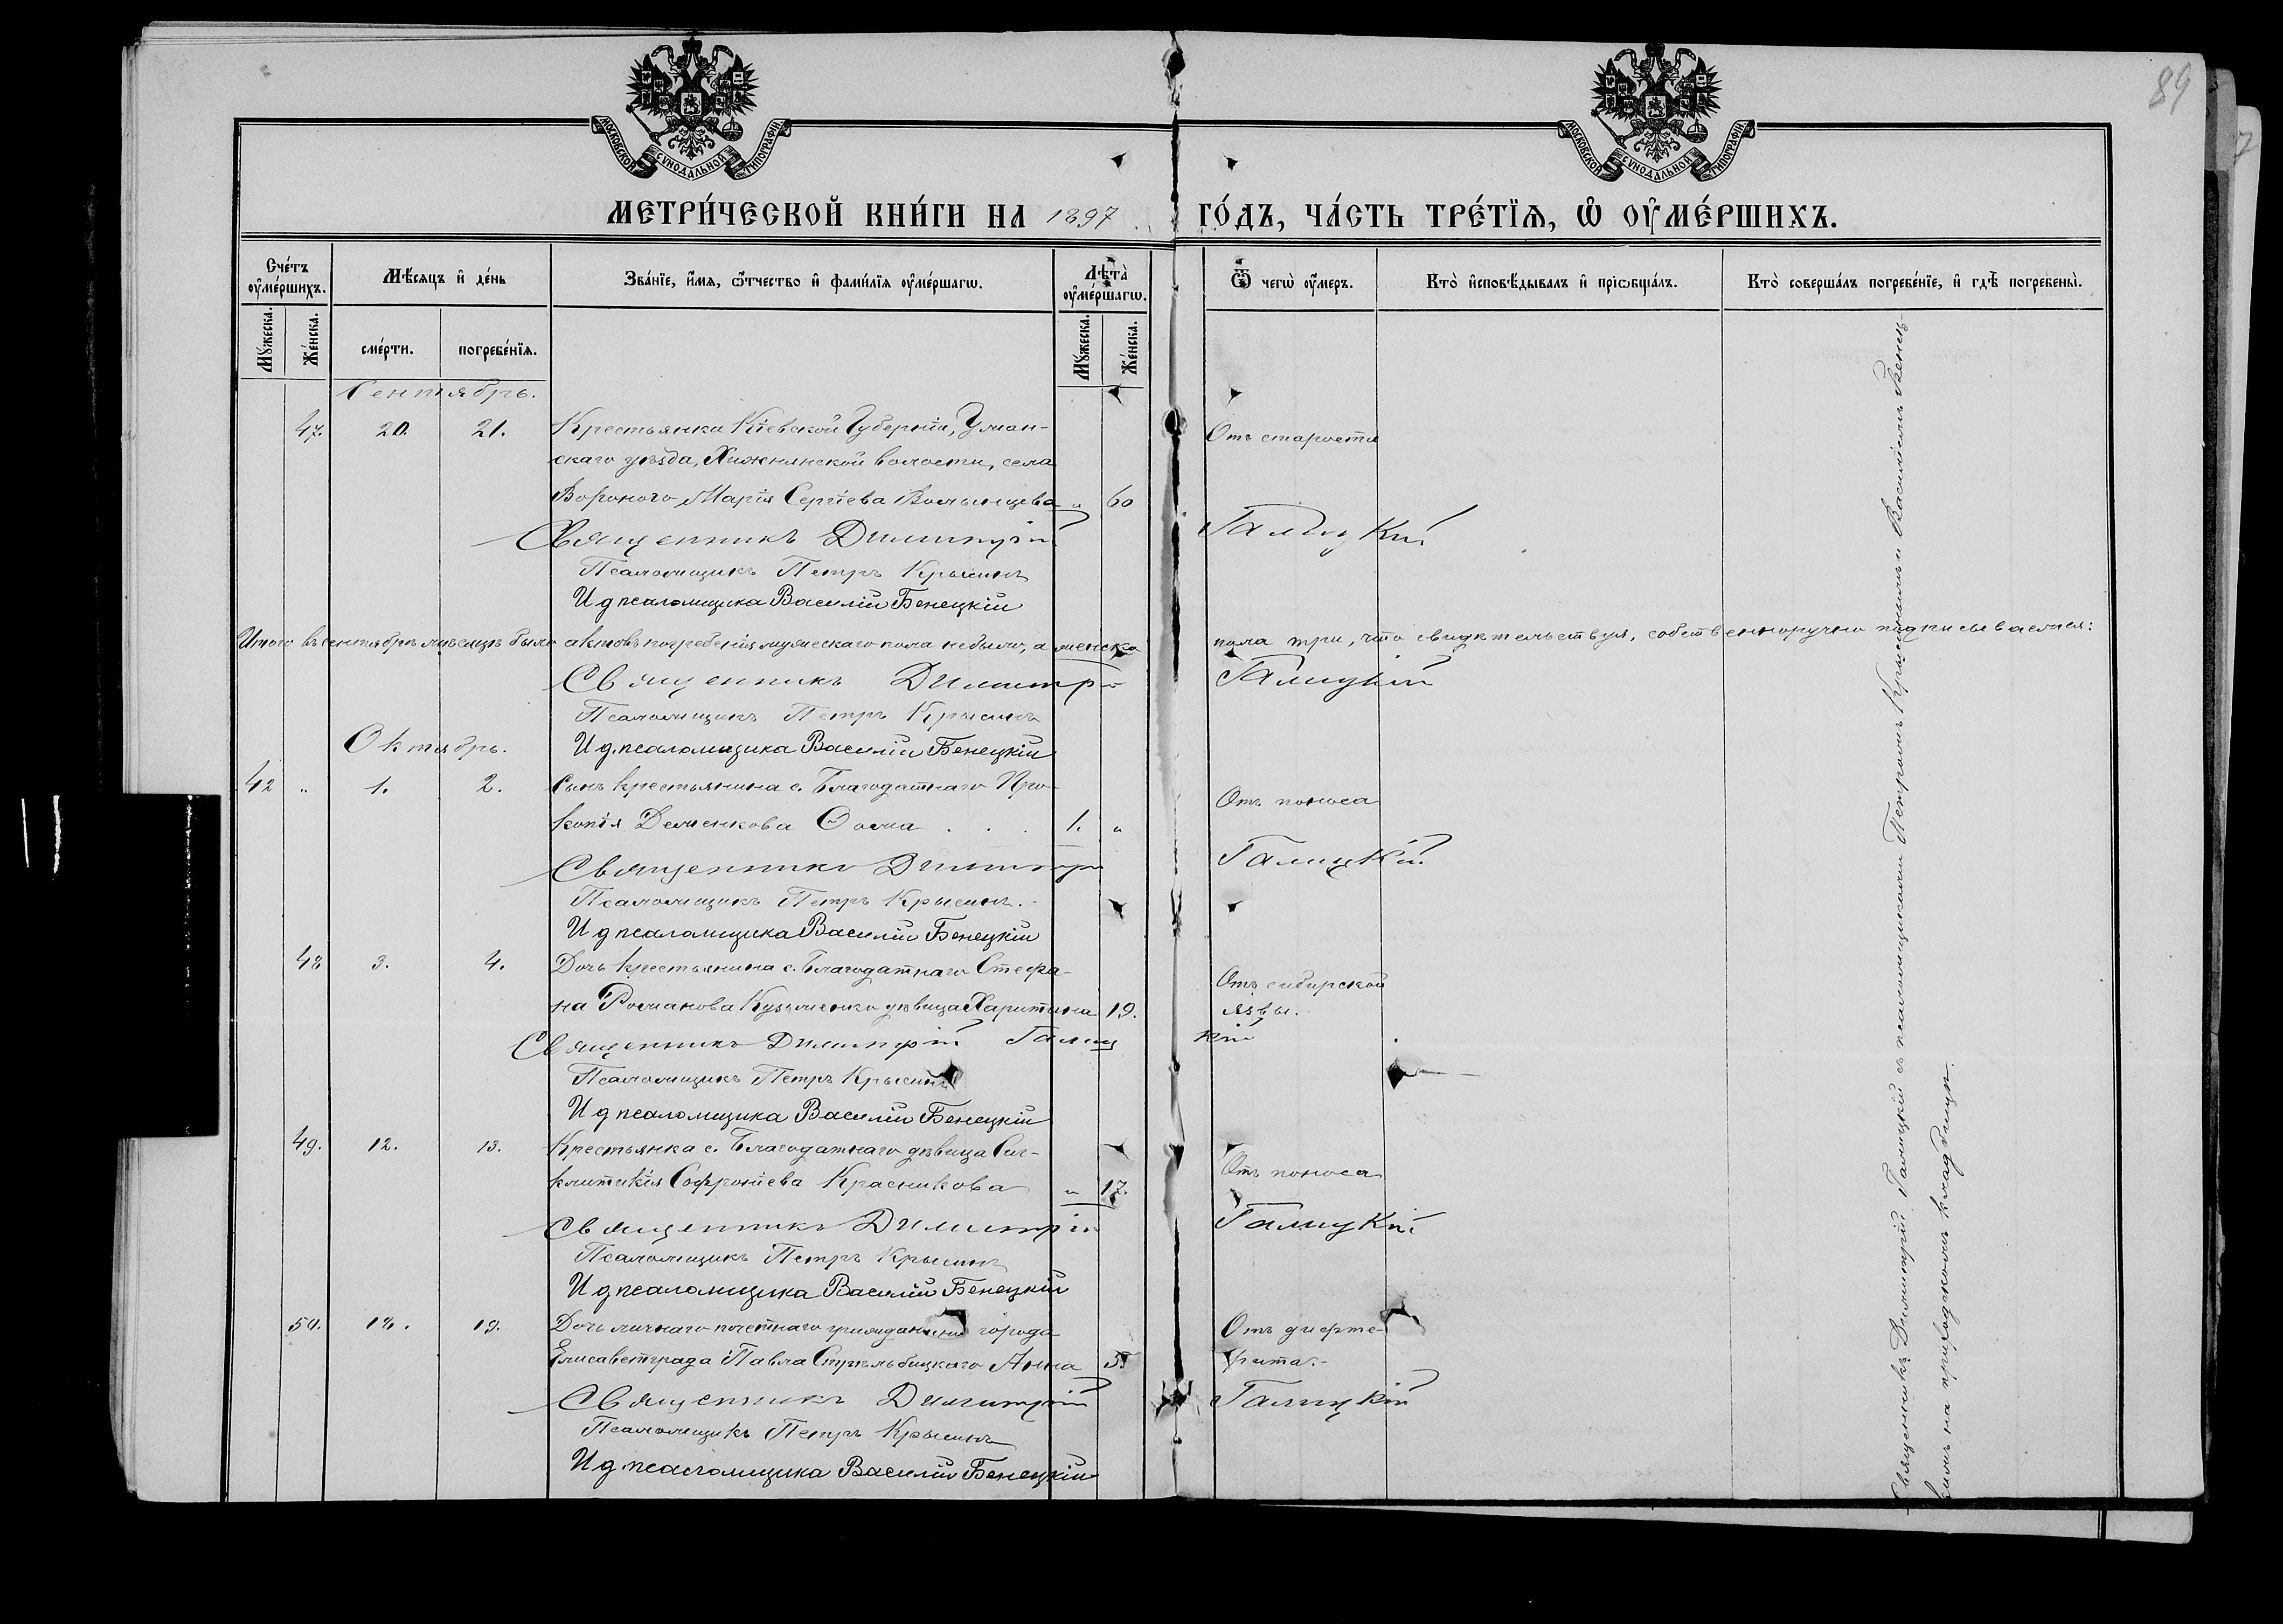 89
МОСКОВСКОЙ СѴНОДАЛЬНОЙ ТИПОГРАФІИ
МОСКОВСКОЙ СѴНОДАЛЬНОЙ ТИПОГРАФІИ
МЕТРИ́ЧЕСКОЙ КНИ́ГИ НА 1897 ГО́ДЪ, ЧА́СТЬ ТРЕ́ТЇѦ, Ѡ҆ ОУ҆МЕ́РШИХЪ.
Сче́тъ оу҆ме́ршихъ.
Мѣ́сяцъ и҆ де́нь
Зва́нїе, и҆́мѧ, ѻ҆́тчество и҆ фами́лїѧ оу҆ме́ршагѡ.
Лѣта̀ оу҆ме́ршагѡ.
Ѿ чегѡ̀ оу҆́меръ.
Кто̀ и҆сповѣ́дывалъ и҆ прїѡбща́лъ.
Кто̀ соверша́лъ погребе́нїе, и҆ гдѣ̀ погребены̀.
Мꙋ́жеска.
Же́нска.
сме́рти.
погребе́нїѧ.
Мꙋ́жеска.
Же́нска.
Сентябрь.
47. 20. 21. Крестьянка Кіевской Губерніи, Уман-
скаго уѣзда, Хижнянской волости, села
Вороного Марія Сергіева Волынцева " 60 Отъ старости
Священникъ Димитрій Галицкій
Псаломщикъ Петръ Крысинъ
И д псаломщика Василій Бенецкій
Итого въ сентябрѣ мѣсяцѣ было актовъ погребенія мужескаго пола не было, а женска пола три, что свидѣтельствуя, собственноручно подписываемся:
Священникъ Димитрі Галицкій
Псаломщикъ Петръ Крысинъ
И д. псаломщика Василій Бенецкій
Октябрь.
42 " 1. 2. Сынъ крестьянина с. Благодатнаго Про-
копія Деменкова Ѳома . . . 1. " Отъ поноса
Священникъ Димитрі Галицкій
Псаломщикъ Петръ Крысинъ.
И д псаломщика Василій Бенецкій
48 3. 4. Дочь крестьянина с. Благодатнаго Стефа-
на Романова Кузьменко дѣвица Харитина 19. Отъ сибирской
язвы.
Священникъ Димитрій Галицкій
Псаломщикъ Петръ Крысинъ
И д псаломщика Василій Бенецкій
49. 12. 13. Крестьянка с. Благодатнаго дѣвица Син-
клитикія Софроніева Красникова " 17. Отъ поноса
Священникъ Димитрій Галицкій
Псаломщикъ Петръ Крысинъ
И д псаломщика Василій Бенецкій
50. 18. 19. Дочь личнаго почетнаго гражданина города
Елисаветграда Павла Стрѣльбицкаго Анна 5. Отъ дифте-
рита.
Священникъ Димитрій Галицкій
Псаломщикъ Петръ Крысинъ
И д псаломщика Василій Бенецкій
Священникъ Димитрій Галицкій съ псаломщиками Петромъ Крысинымъ и Василіемъ Бенец-
кимъ на приходскомъ кладбищѣ.